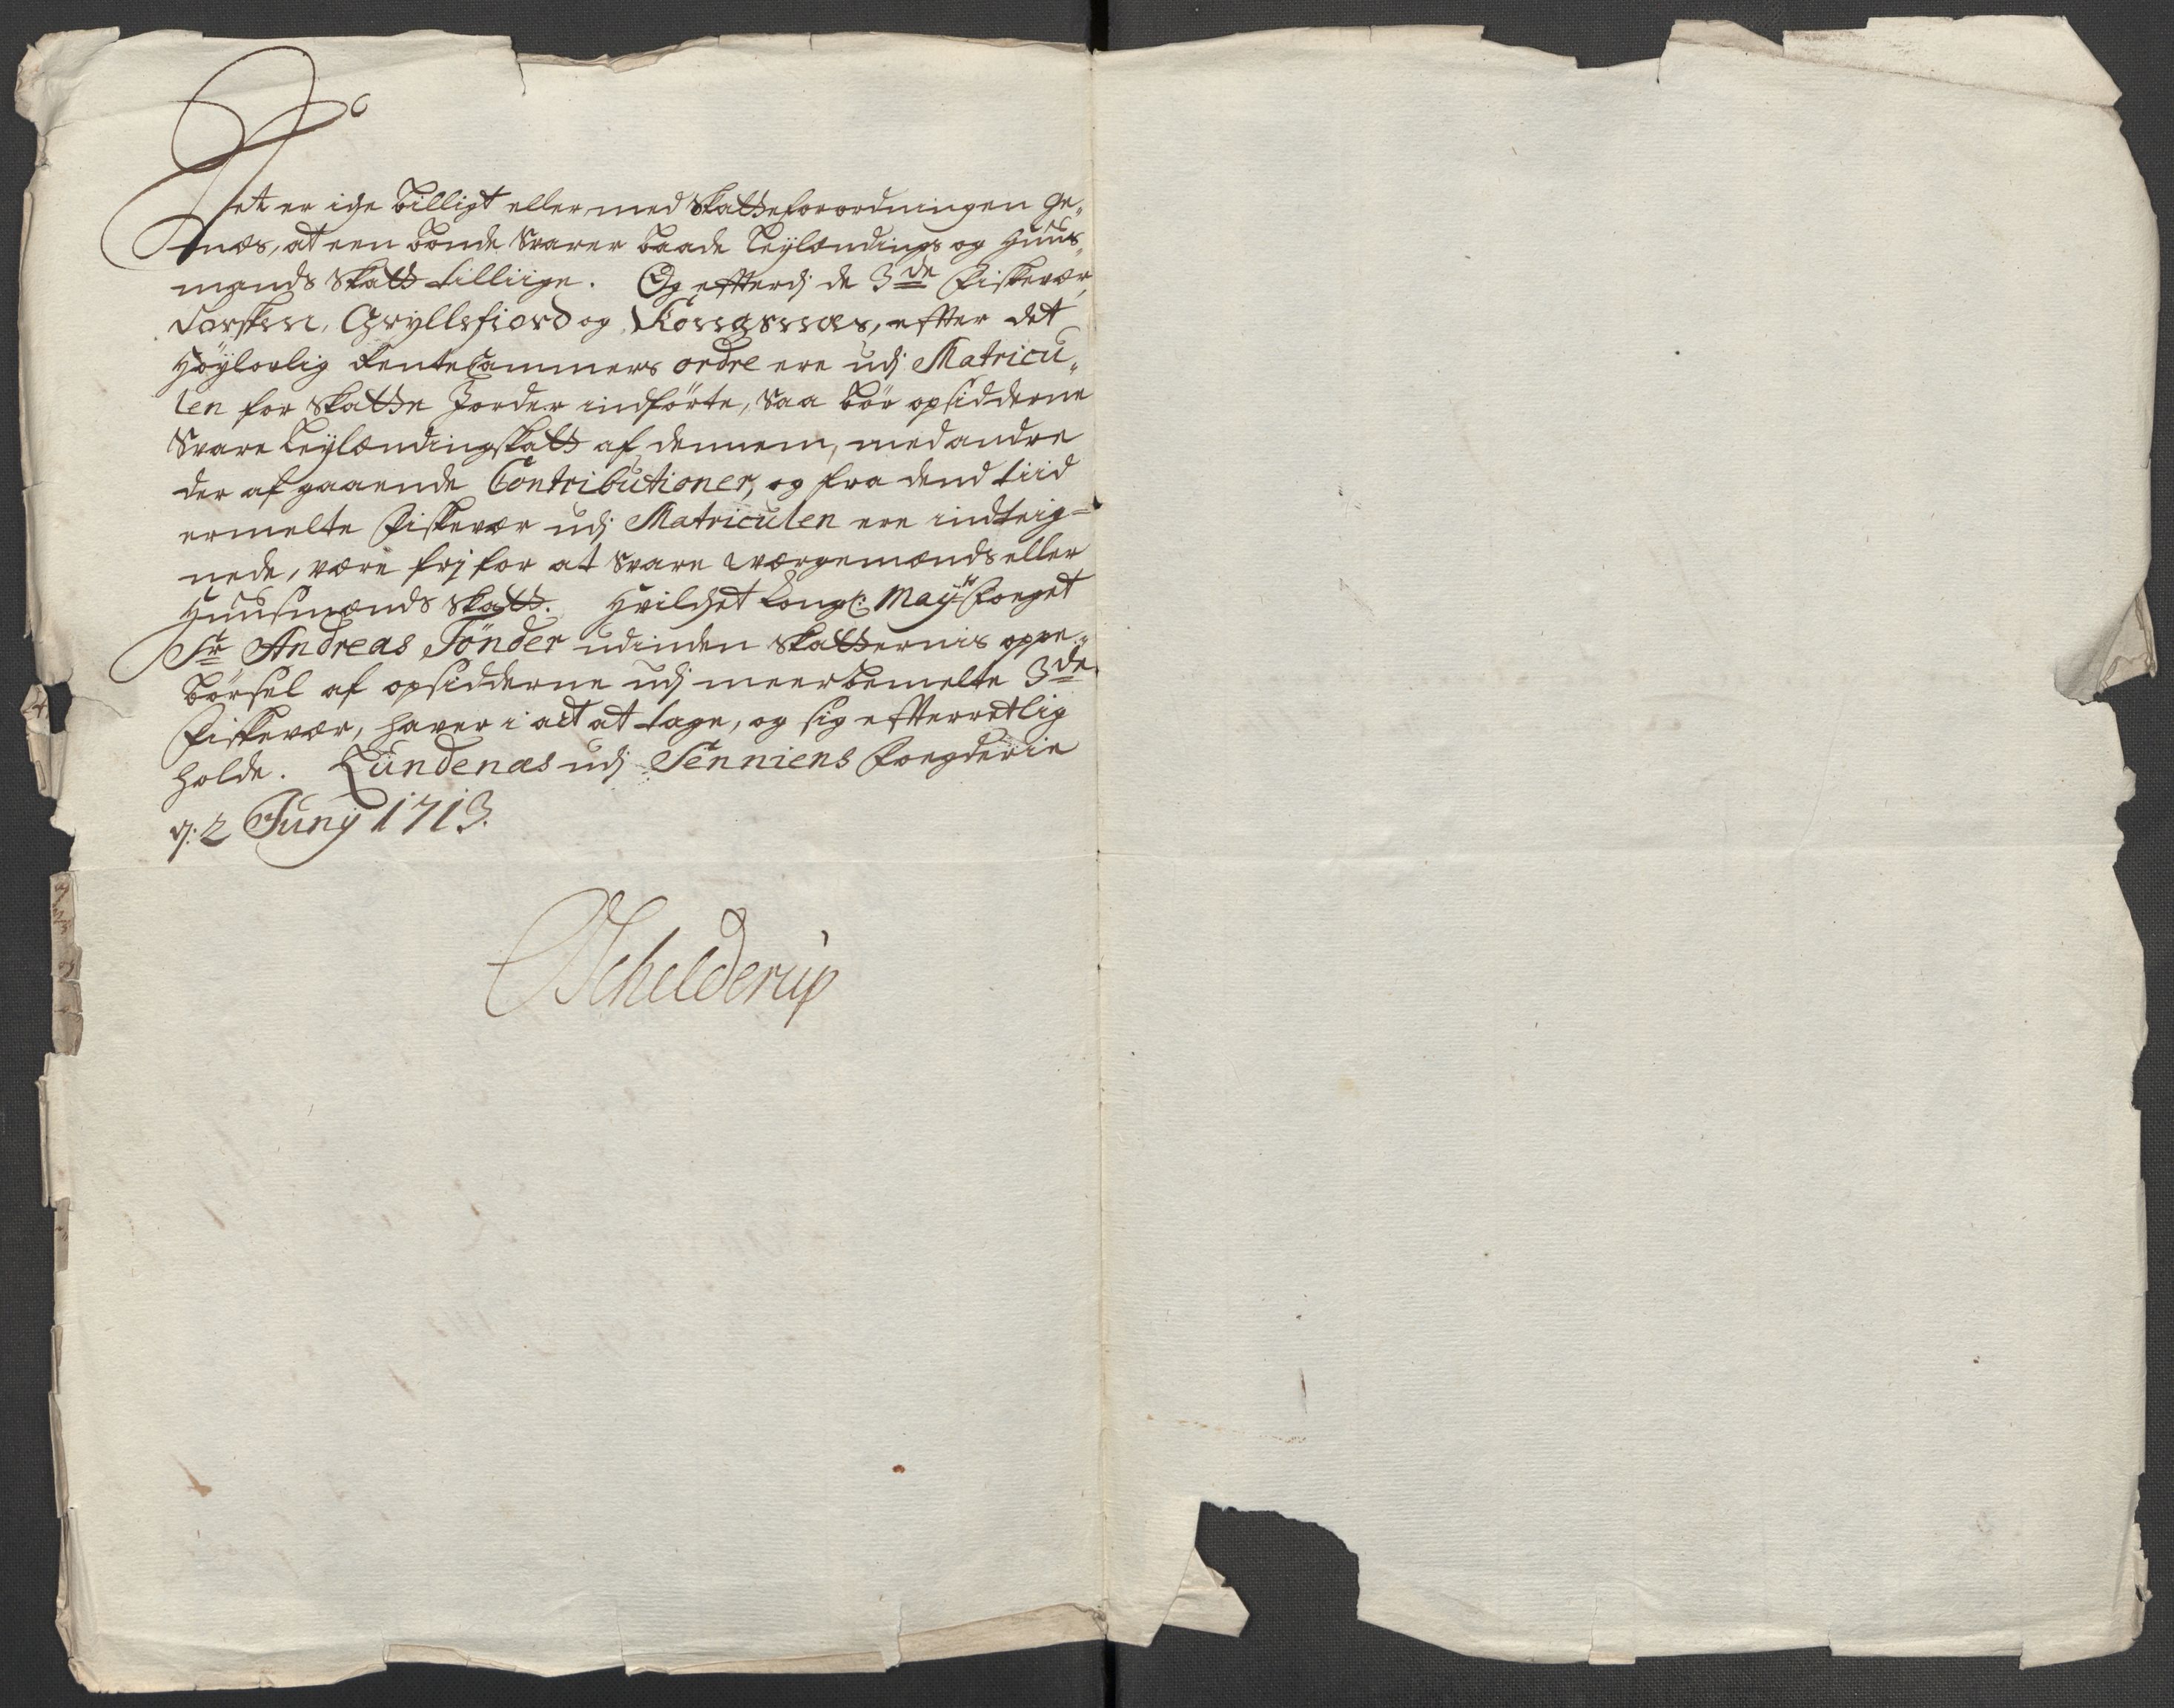 Det er iche billigt eller med Skatteforordningen Ge„
mæs, at een bonde Svarer baade Leylændings og Huus„
mands Skatt tilliige. Og effterdj de 3de Fiskevær,
Torsken, Gryllefiord og Kongsnæs, effter det
Höylovlig RenteCammers ordre ere udj Matricu„
len for Skatte Jorder indförte, Saa bör opsidderne
Svare Leylændingskatt af dennem, med andre
der af gaaende Contributioner, og fra dend tiid
ermelte Fiskevær udj Matriculen ere indteig=
nede, være frj for at Svare Værgemænds eller
Huusmænds Skatt. Hvilchet Kongl: Mayts Foeget
Sr Andreas Tönder udinden Skatternis oppe„
börsel af opsidderne udj meerbemelte 3de
Fiskevær, haver i act at tage, og sig effterretlig
holde. Lundenæs udj Senniens Foegderie
d: 2 Junij 1713.
Schelderup